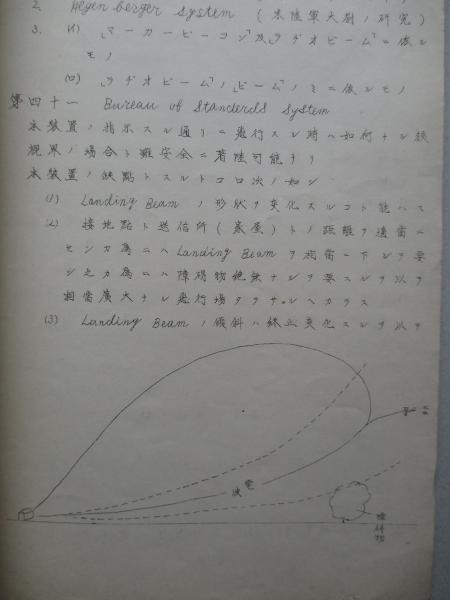 2. Hegenberger System (米陸軍大尉ノ研究)
3. (イ) 「マーカービーコン」及「ラヂオビーム」ニ依ル
モノ
(ロ) 「ラヂオビーム」ノ「ビーム」ノミニ依ルモノ
第四十一 Bureau of Standerds System
本装置ノ指示スル通リニ飛行スル時ハ如何ナル
視界ノ場合ト雖安全ニ着陸可能ナリ
本装置ノ缺點トスルトコロ次ノ如シ
(1) Landing Beamノ形状ヲ変化スルコト能ハズ
(2) 接地點ト送信所(基)トノ距離ヲ適當ニ
センガ為ニハLanding Beamヲ相當ニ下ルヲ要
シ之カ為ニハ障碍物絶無ナルヲ要スルヲ以テ
相當廣大ナル飛行場タラサルヘカラス
(3) Landing Beamノ傾斜ハ終止変化スルヲ以テ
電波
障碍物